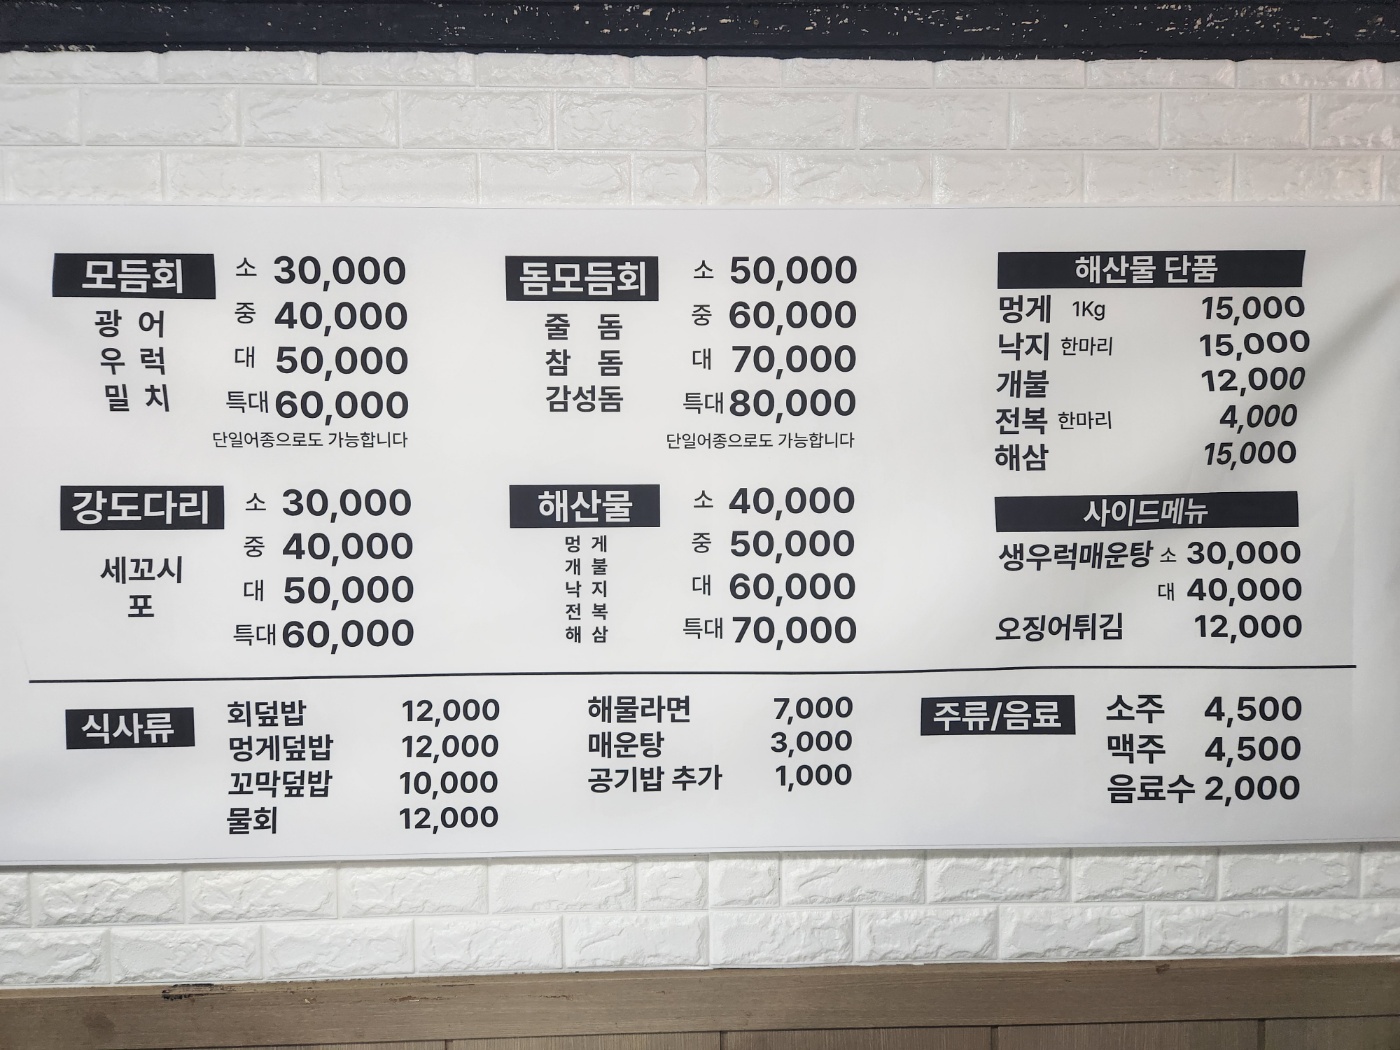 모듬회
광 어
우 럭
밀 치
소 30,000
중 40,000
대 50,000
특대 60,000
단일어종으로도 가능합니다
돔모듬회
줄 돔
참 돔
감성돔
소 50,000
중 60,000
대 70,000
특대 80,000
단일어종으로도 가능합니다
해산물 단품
멍게 1Kg 15,000
낙지 한마리 15,000
개불 12,000
전복 한마리 4,000
해삼 15,000
강도다리
세꼬시
포
소 30,000
중 40,000
대 50,000
특대 60,000
해산물
멍 게
개 불
낙 지
전 복
해 삼
소 40,000
중 50,000
대 60,000
특대 70,000
사이드메뉴
생우럭매운탕 소 30,000
대 40,000
오징어튀김 12,000
식사류
회덮밥 12,000
멍게덮밥 12,000
꼬막덮밥 10,000
물회 12,000
해물라면 7,000
매운탕 3,000
공기밥 추가 1,000
주류/음료
소주 4,500
맥주 4,500
음료수 2,000